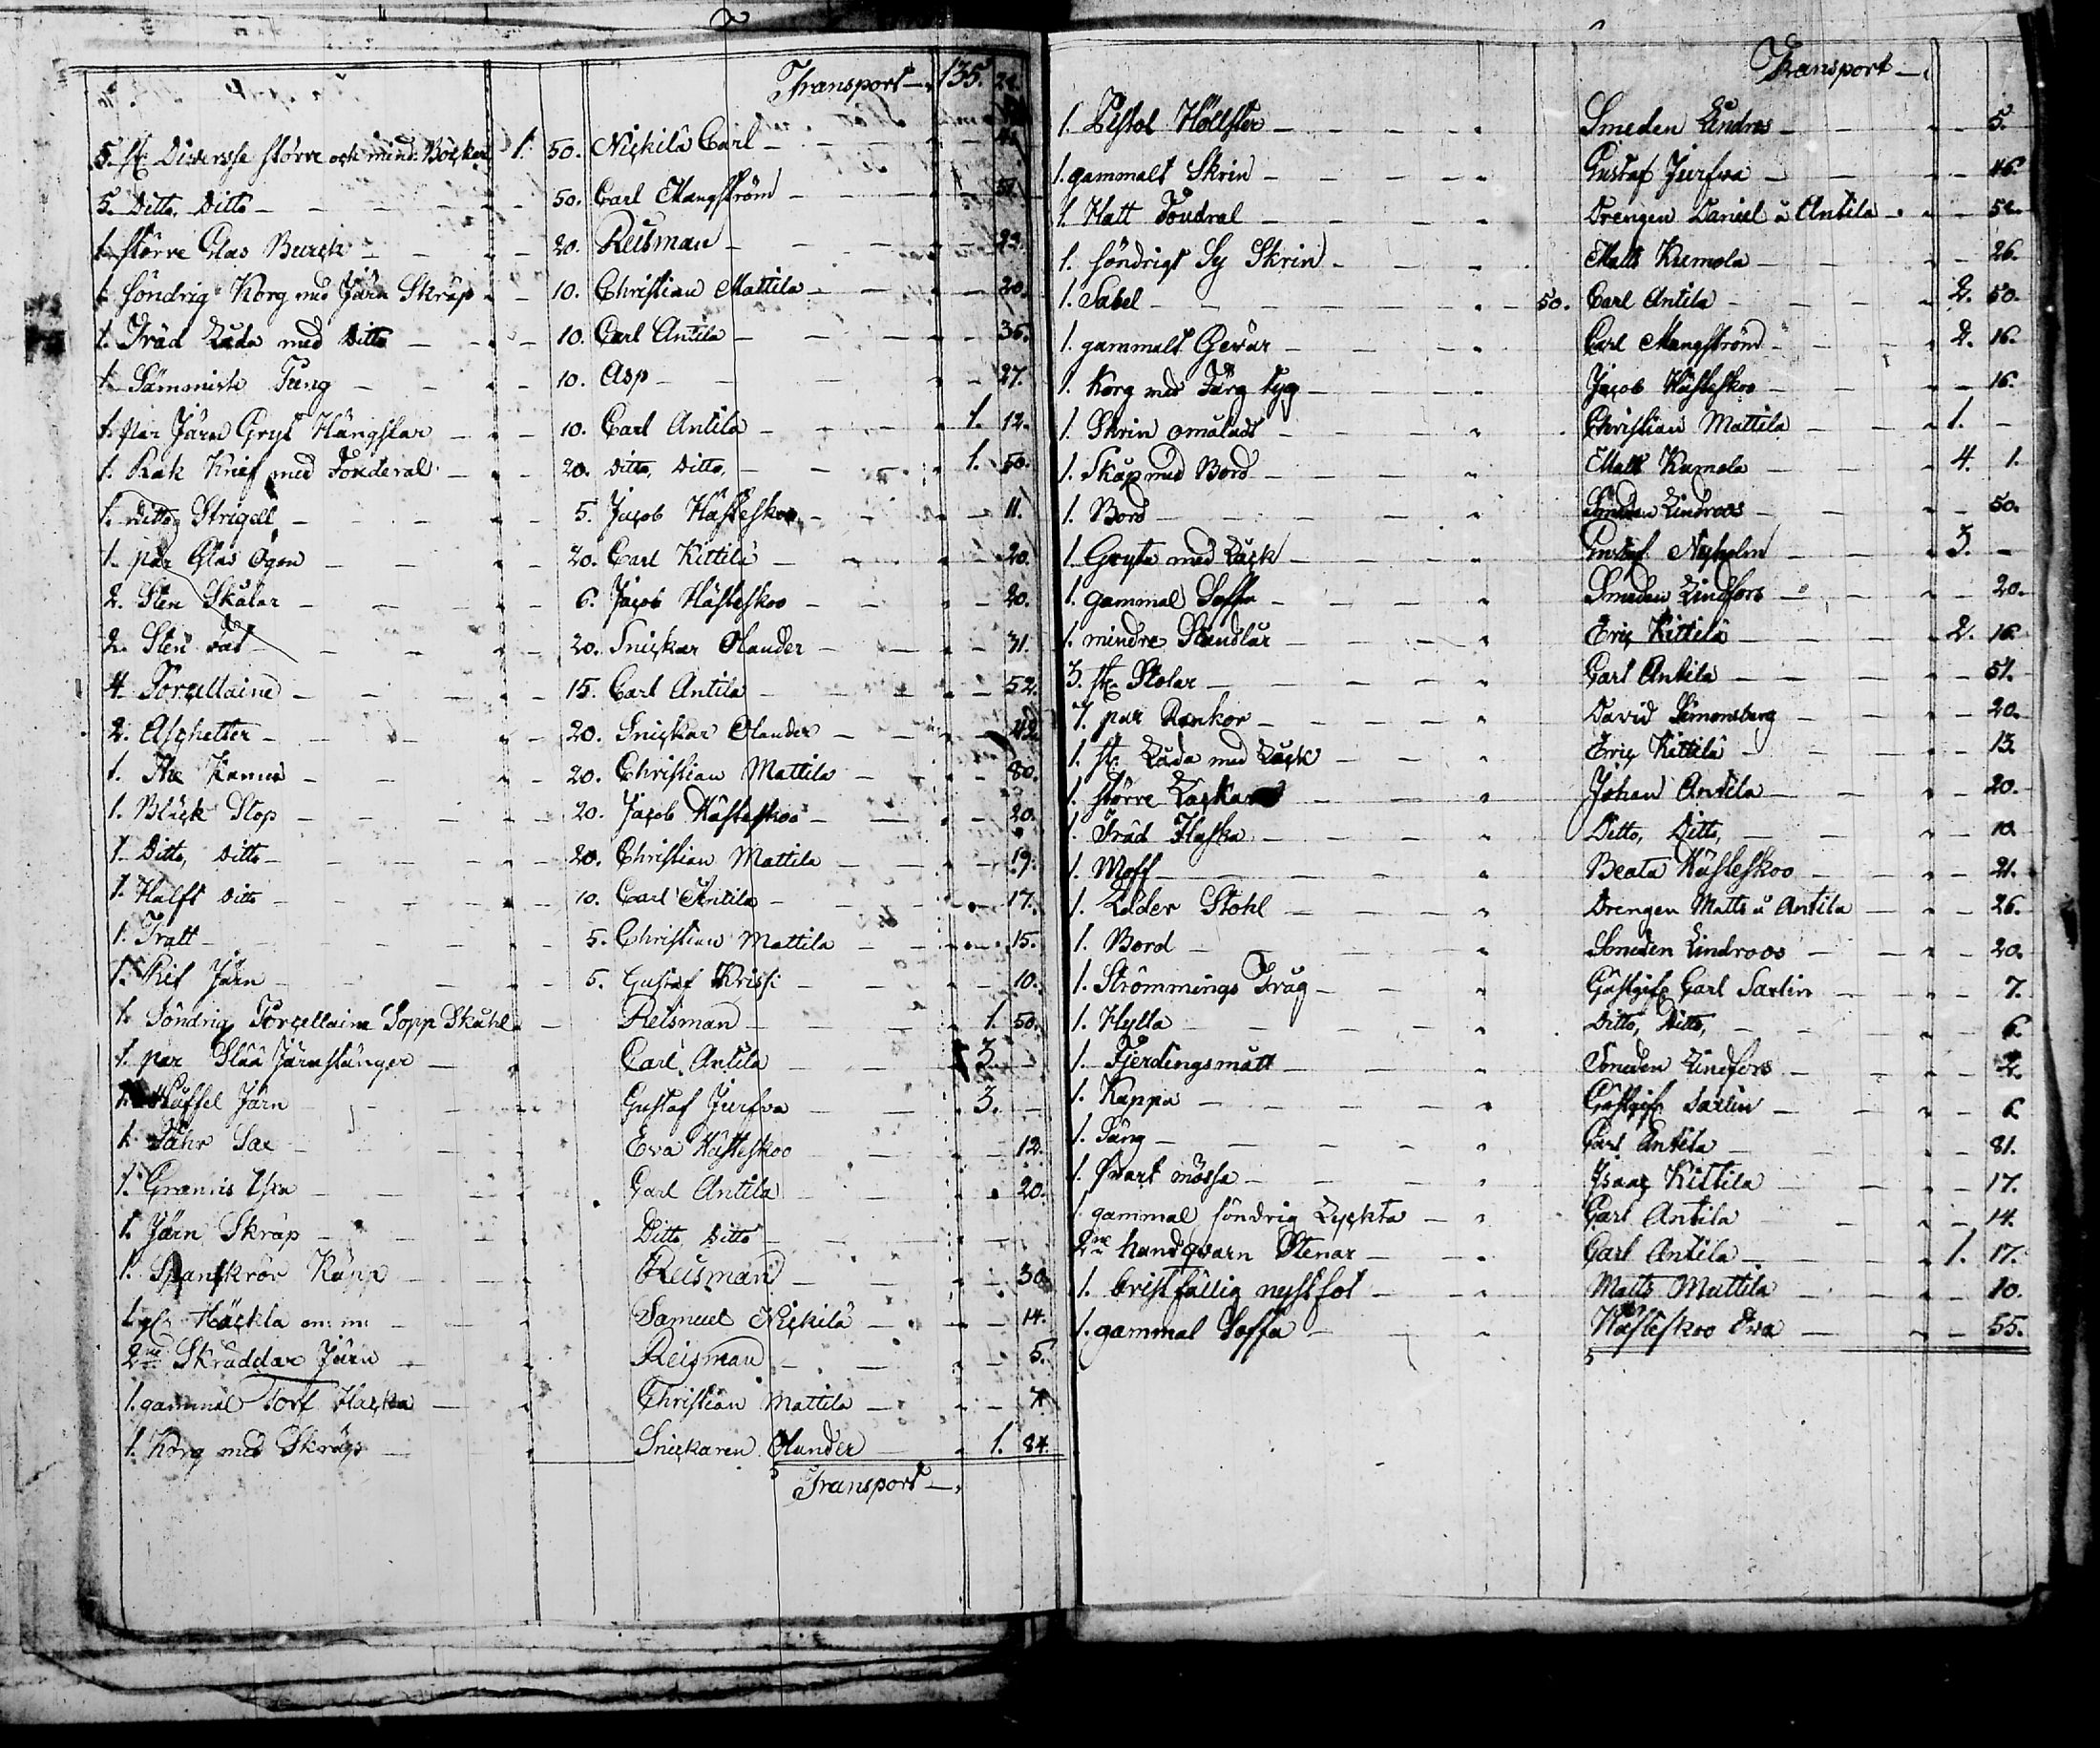 Transport — 135. 24.
5. st. Diversse större och mind. Böcker 1. 50. Nickilä Carl
5. Ditto, Ditto 50. Carl Mangström 51.
1. större Glas Burck 20. Reisman 23.
1. söndrig Korg med Järn Skräp 10. Christian Mattila 20.
1. Träd Låda med Ditto 10. Carl Antila 35.
1. Sämmiste Pung 10. Asp 27.
1. par Järn Gryt Hängslar 10. Carl Antila 1. 12.
1. Rak Knif med Fouderal 20. Ditto, Ditto, 1. 50.
1. Ditto Strigell 5. Jacob Hästeskoo 11.
1. par Glas Ögon 20. Carl Kittilä 20.
2. Sten Skålar 6. Jacob Hästeskoo 20.
2. Sten Fat 20. Snickar Olander 31.
4. Porcellaine 15. Carl Antila 52.
2. Aschetter 20. Snickar Olander 42.
1. The Kanna 20. Christian Mattila 80.
1. Bläck Stop 20. Jacob Hästeskoo 20.
1. Ditto, Ditto 20. Christian Mattila 19.
1. Halft Ditto 10. Carl Antila 17.
1. Tratt 5. Christian Mattila 15.
1. Rif Järn 5. Gustaf Krissi 10.
1. Söndrig Porcellaine Sopp Skåhl Reisman 1. 50.
1. par Slåå Järnstänger Carl Antila 3. —
1. Våffel Järn Gustaf Jurfva 3. —
1. Fåhr Sax Eva Hästeskoo 12.
1. Carl Antila 20.
1. Järn Skräp Ditto Ditto
1. Spanskrör Käpp Reisman 30.
1. Häckla m: m: Samuel Nickilä 14.
2ne Skräddar Järn Reisman 5.
1. gammal Torf Hacka Christian Mattila 7.
1. Korg med Skräp Snickaren Olander 1. 84.
Transport —
Transport —
1. Pistol Höllster Smeden Lindros 5.
1. gammalt Skrin Gustaf Jurfva 46.
1. Hatt Foudral Drengen Daniel å Antila 52.
1. söndrigt Sy Skrin Matts Kumola 26.
1. Sabel 50. Carl Antila 2. 50.
1. gammalt Gevär Carl Mangström 2. 16.
1. Korg med Färg tyg Jacob Hästeskoo 16.
1. Skrin omåladt Christian Mattila 1. —
1. Skåp med Bord Matts Kumola 4. 1.
1. Bord Smeden Lindroos 50.
1. Gryta med Läck Gustaf Nyholm 3. —
1. gammal Soffa Smeden Lindfors 20.
1. mindre Eric Kittilä 2. 16.
3. st. Stolar Carl Antila 51.
1. par Rankor David Simonsberg 20.
1. st. Låda med Läck Eric Kittilä 13.
1. större Johan Antila 20.
1. Träd Flaska Ditto, Ditto, 10.
1. Moff Beata Hästeskoo 21.
1. Läder Stohl Drengen Matts å Antila 26.
1. Bord Smeden Lindroos 20.
1. Strömmings Tråg Gästgif: Carl Saxlin 7.
1. Hylla Ditto, Ditto, 6.
1. Fjerdingsmått Smeden Lindfors
1. Kappa Gästgif: Saxlin 6.
1. Säng Carl Antila 81.
1. svart mössa Isaac Kittila 17.
1 gammal söndrig Lyckta Carl Antila 14.
2ne handqvarn Stenar Carl Antila 1. 17.
1. bristfällig Matts Mattila 10.
1. gammal Soffa Hästeskoo Eva 55.